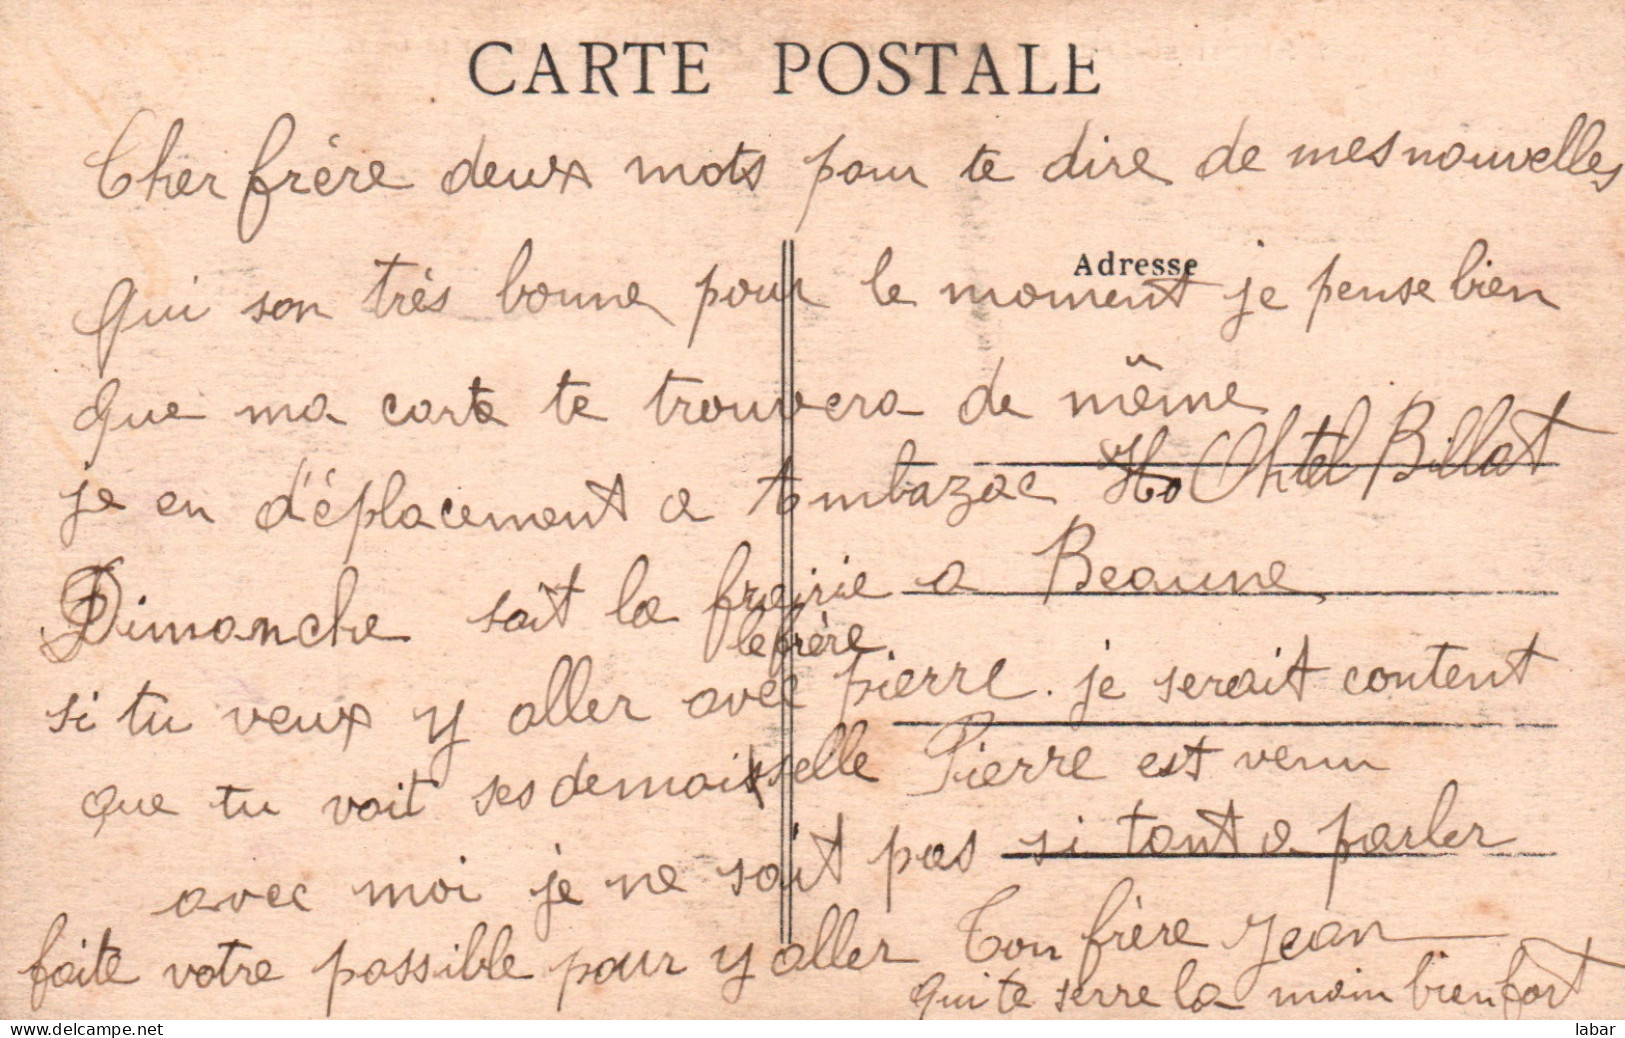 CARTE POSTALE
Cher frère deux mots pour te dire de mes nouvelles
Adresse
qui son très bonne pour le moment je pense bien
que ma carte te trouvera de même
je en déplacement a Ambazac Ho Ohtel Billat
Dimanche sait la frairie a Beaune
le frère
si tu veux y aller avec pierre. je serait content
que tu voit ses demaisselle Pierre est venu
avec moi je ne sait pas si tant a parler
faite votre possible pour y aller Ton frère Jean
qui te serre la main bien fort
labar